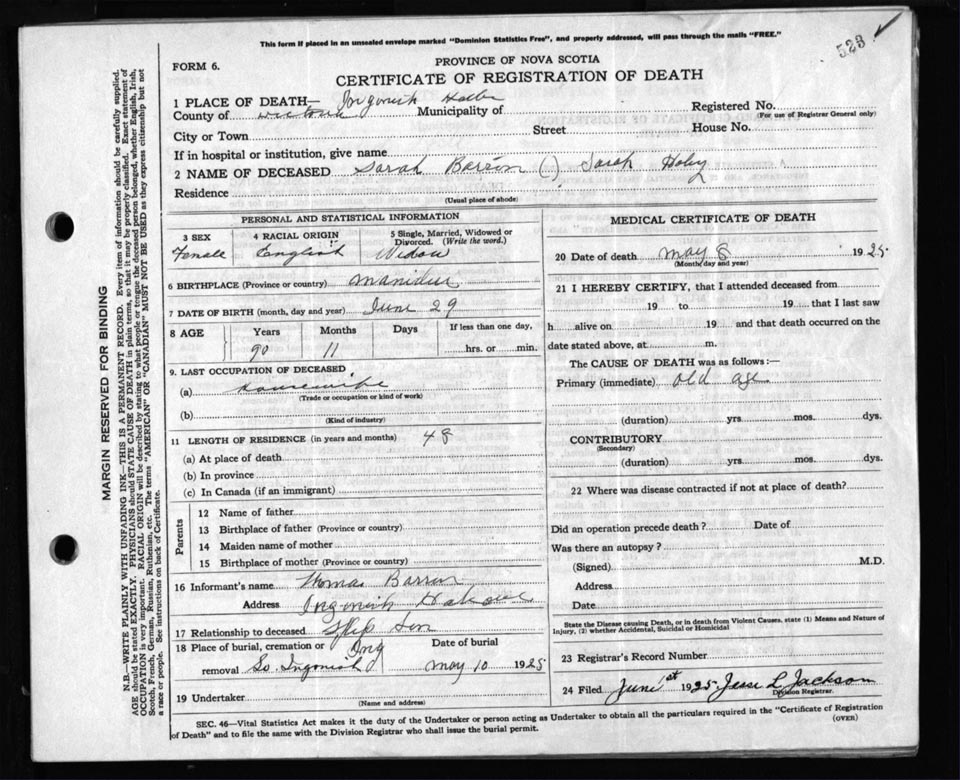 This form if placed in an unsealed envelope marked "Dominion Statistics Free", and properly addressed, will pass through the mails "FREE."
523
FORM 6.
PROVINCE OF NOVA SCOTIA
CERTIFICATE OF REGISTRATION OF DEATH
1 PLACE OF DEATH—
County of Municipality of Registered No.
(For use of Registrar General only)
City or Town Street House No.
If in hospital or institution, give name
2 NAME OF DECEASED Sarah ( ) Sarah
Residence
(Usual place of abode)
MARGIN RESERVED FOR BINDING
N.B.—WRITE PLAINLY WITH UNFADING INK—THIS IS A PERMANENT RECORD. Every item of information should be carefully supplied.
AGE should be stated EXACTLY. PHYSICIANS should STATE CAUSE OF DEATH in plain terms, so that it may be properly classified. Exact statement of
OCCUPATION is very important. RACIAL ORIGIN will be described by stating to what people or tongue the deceased person belonged, whether English, Irish,
Scotch, French, German, Russian, Ruthenian, etc. The terms "AMERICAN" OR "CANADIAN" MUST NOT BE USED as they express citizenship but not
a race or people. See instructions on back of Certificate.
PERSONAL AND STATISTICAL INFORMATION
3 SEX 4 RACIAL ORIGIN 5 Single, Married, Widowed or
Divorced. (Write the word.)
Female English Widow
6 BIRTHPLACE (Province or country)
7 DATE OF BIRTH (month, day and year) June 29
8 AGE Years Months Days If less than one day,
90 11 hrs. or min.
9. LAST OCCUPATION OF DECEASED
(a) Housewife
(Trade or occupation or kind of work)
(b)
(Kind of industry)
11 LENGTH OF RESIDENCE (in years and months) 48
(a) At place of death
(b) In province
(c) In Canada (if an immigrant)
Parents
12 Name of father
13 Birthplace of father (Province or country)
14 Maiden name of mother
15 Birthplace of mother (Province or country)
16 Informant's name Thomas
Address Ingonish
17 Relationship to deceased Step Son
18 Place of burial, cremation or Ing Date of burial
removal So. Ingonish May 10 1925
19 Undertaker
(Name and address)
MEDICAL CERTIFICATE OF DEATH
20 Date of death May 8 1925
(Month, day and year)
21 I HEREBY CERTIFY, that I attended deceased from
19 to 19 that I last saw
h alive on 19 and that death occurred on the
date stated above, at m.
The CAUSE OF DEATH was as follows:—
Primary (immediate) old age
(duration) yrs. mos. dys.
CONTRIBUTORY
(Secondary)
(duration) yrs. mos. dys.
22 Where was disease contracted if not at place of death?
Did an operation precede death? Date of
Was there an autopsy?
(Signed) M.D.
Address
Date
State the Disease causing Death, or in death from Violent Causes, state (1) Means and Nature of
Injury, (2) whether Accidental, Suicidal or Homicidal
23 Registrar's Record Number
24 Filed June 1st 1925 Jesse L Jackson
Division Registrar.
SEC. 46—Vital Statistics Act makes it the duty of the Undertaker or person acting as Undertaker to obtain all the particulars required in the "Certificate of Registration
of Death" and to file the same with the Division Registrar who shall issue the burial permit.
(OVER)